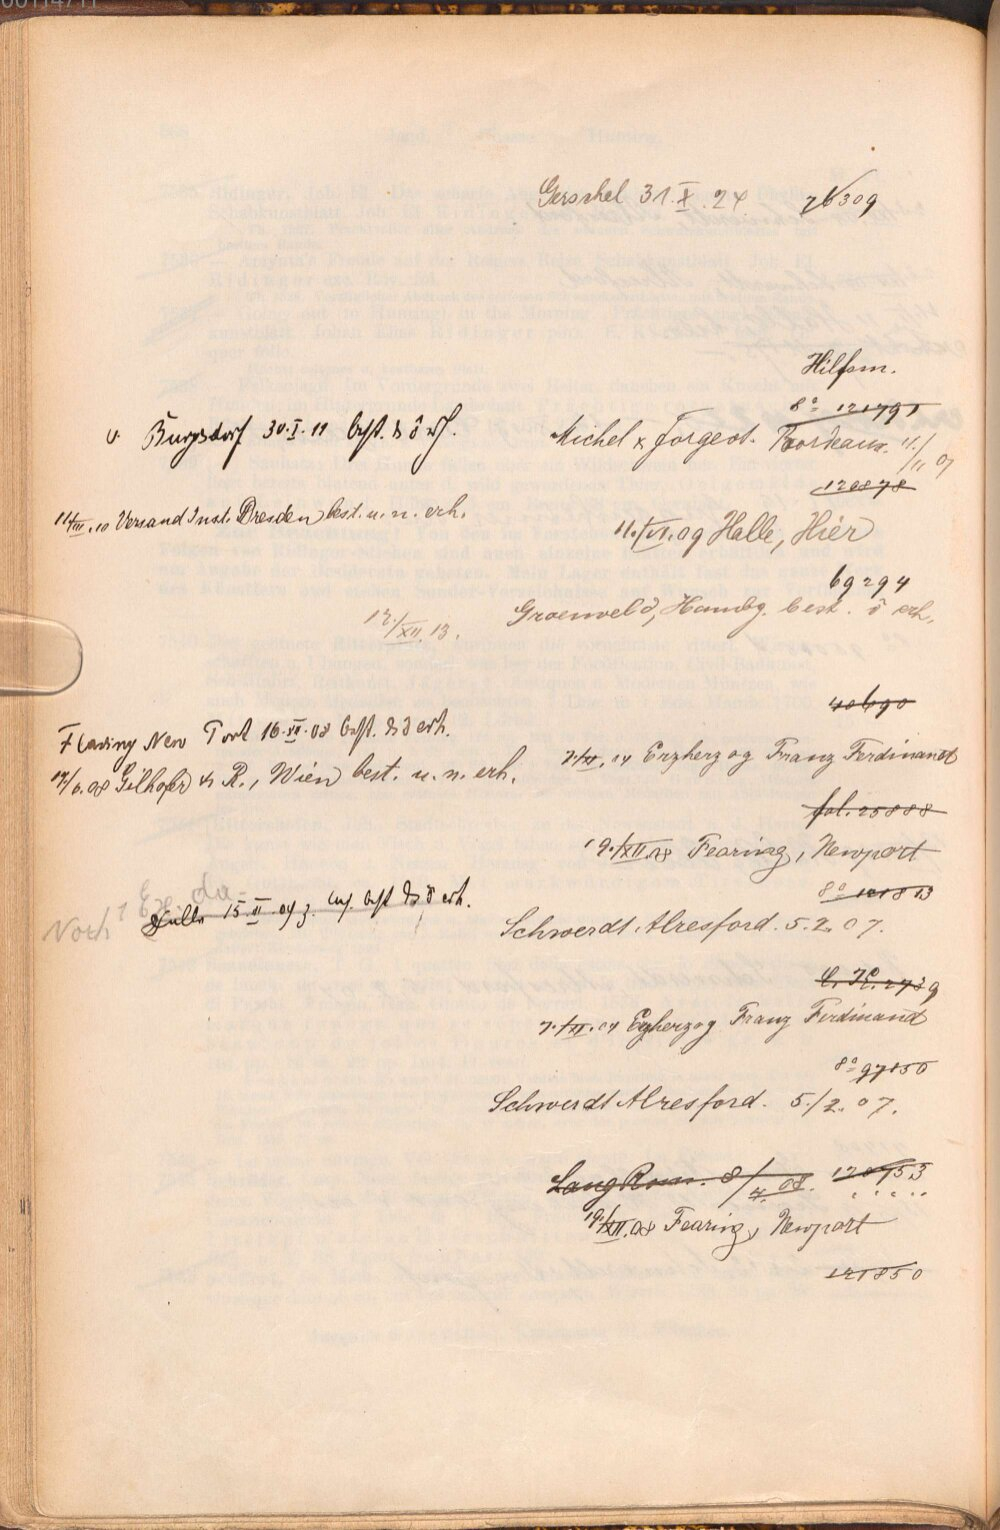 Gerschel 31.X.24 76309
Hilfsm.
8° 121791
v. Burgsdorf 30.I.11 best.
Michel & Forgeot. Bordeaux. 11./11 07
120878
11/III.10 Versand Inst. Dresden best. u. n. erh.
11./VI.09 Halle, Hier
69294
Groenveld, Hambg. best. erh.
12./XII.13.
40690
Fearing New Port 16.XII.08 best. erh.
7/XI.04 Erzherzog Franz Ferdinand
17/6.08 Gilhofer & R., Wien best. u. n. erh.
fol. 25888
19./XII.08 Fearing, Newport
8° 121813
Noch 1 Ex. da
Halle 15.II.09 best erh.
Schwerdt Alresford. 5.2.07.
2739
7./XI.04 Erzherzog Franz Ferdinand
8° 97850
Schwerdt Alresford. 5./2.07.
Lang Rom. 8/4.08. 120753
19./XII.08 Fearing, Newport
121850